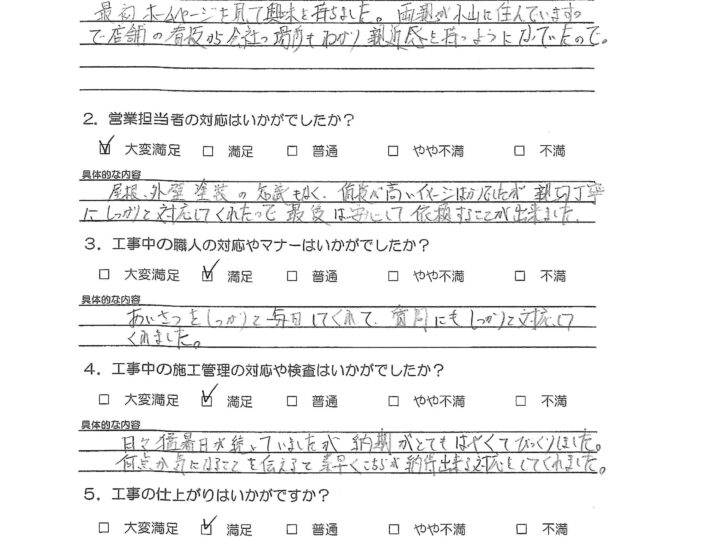 最初ホームページを見て興味を持ちました。両親が小山に住んでいますの
で店舗の看板から会社の場所もわかり親近感を持つようになっていたので。
2. 営業担当者の対応はいかがでしたか?
☑ 大変満足 □ 満足 □ 普通 □ やや不満 □ 不満
具体的な内容
屋根、外壁塗装の知識もなく、価格が高いイメージばかりでしたが親切丁寧
にしっかりと対応してくれたので最後は安心して依頼することが出来ました。
3. 工事中の職人の対応やマナーはいかがでしたか?
□ 大変満足 ☑ 満足 □ 普通 □ やや不満 □ 不満
具体的な内容
あいさつをしっかりと毎日してくれて、質問にもしっかりと対応して
くれました。
4. 工事中の施工管理の対応や検査はいかがでしたか?
□ 大変満足 ☑ 満足 □ 普通 □ やや不満 □ 不満
具体的な内容
日々猛暑日が続いていましたが納期がとてもはやくてびっくりしました。
何点か気になることを伝えると素早くこちらが納得出来る対応をしてくれました。
5. 工事の仕上がりはいかがですか?
□ 大変満足 ☑ 満足 □ 普通 □ やや不満 □ 不満